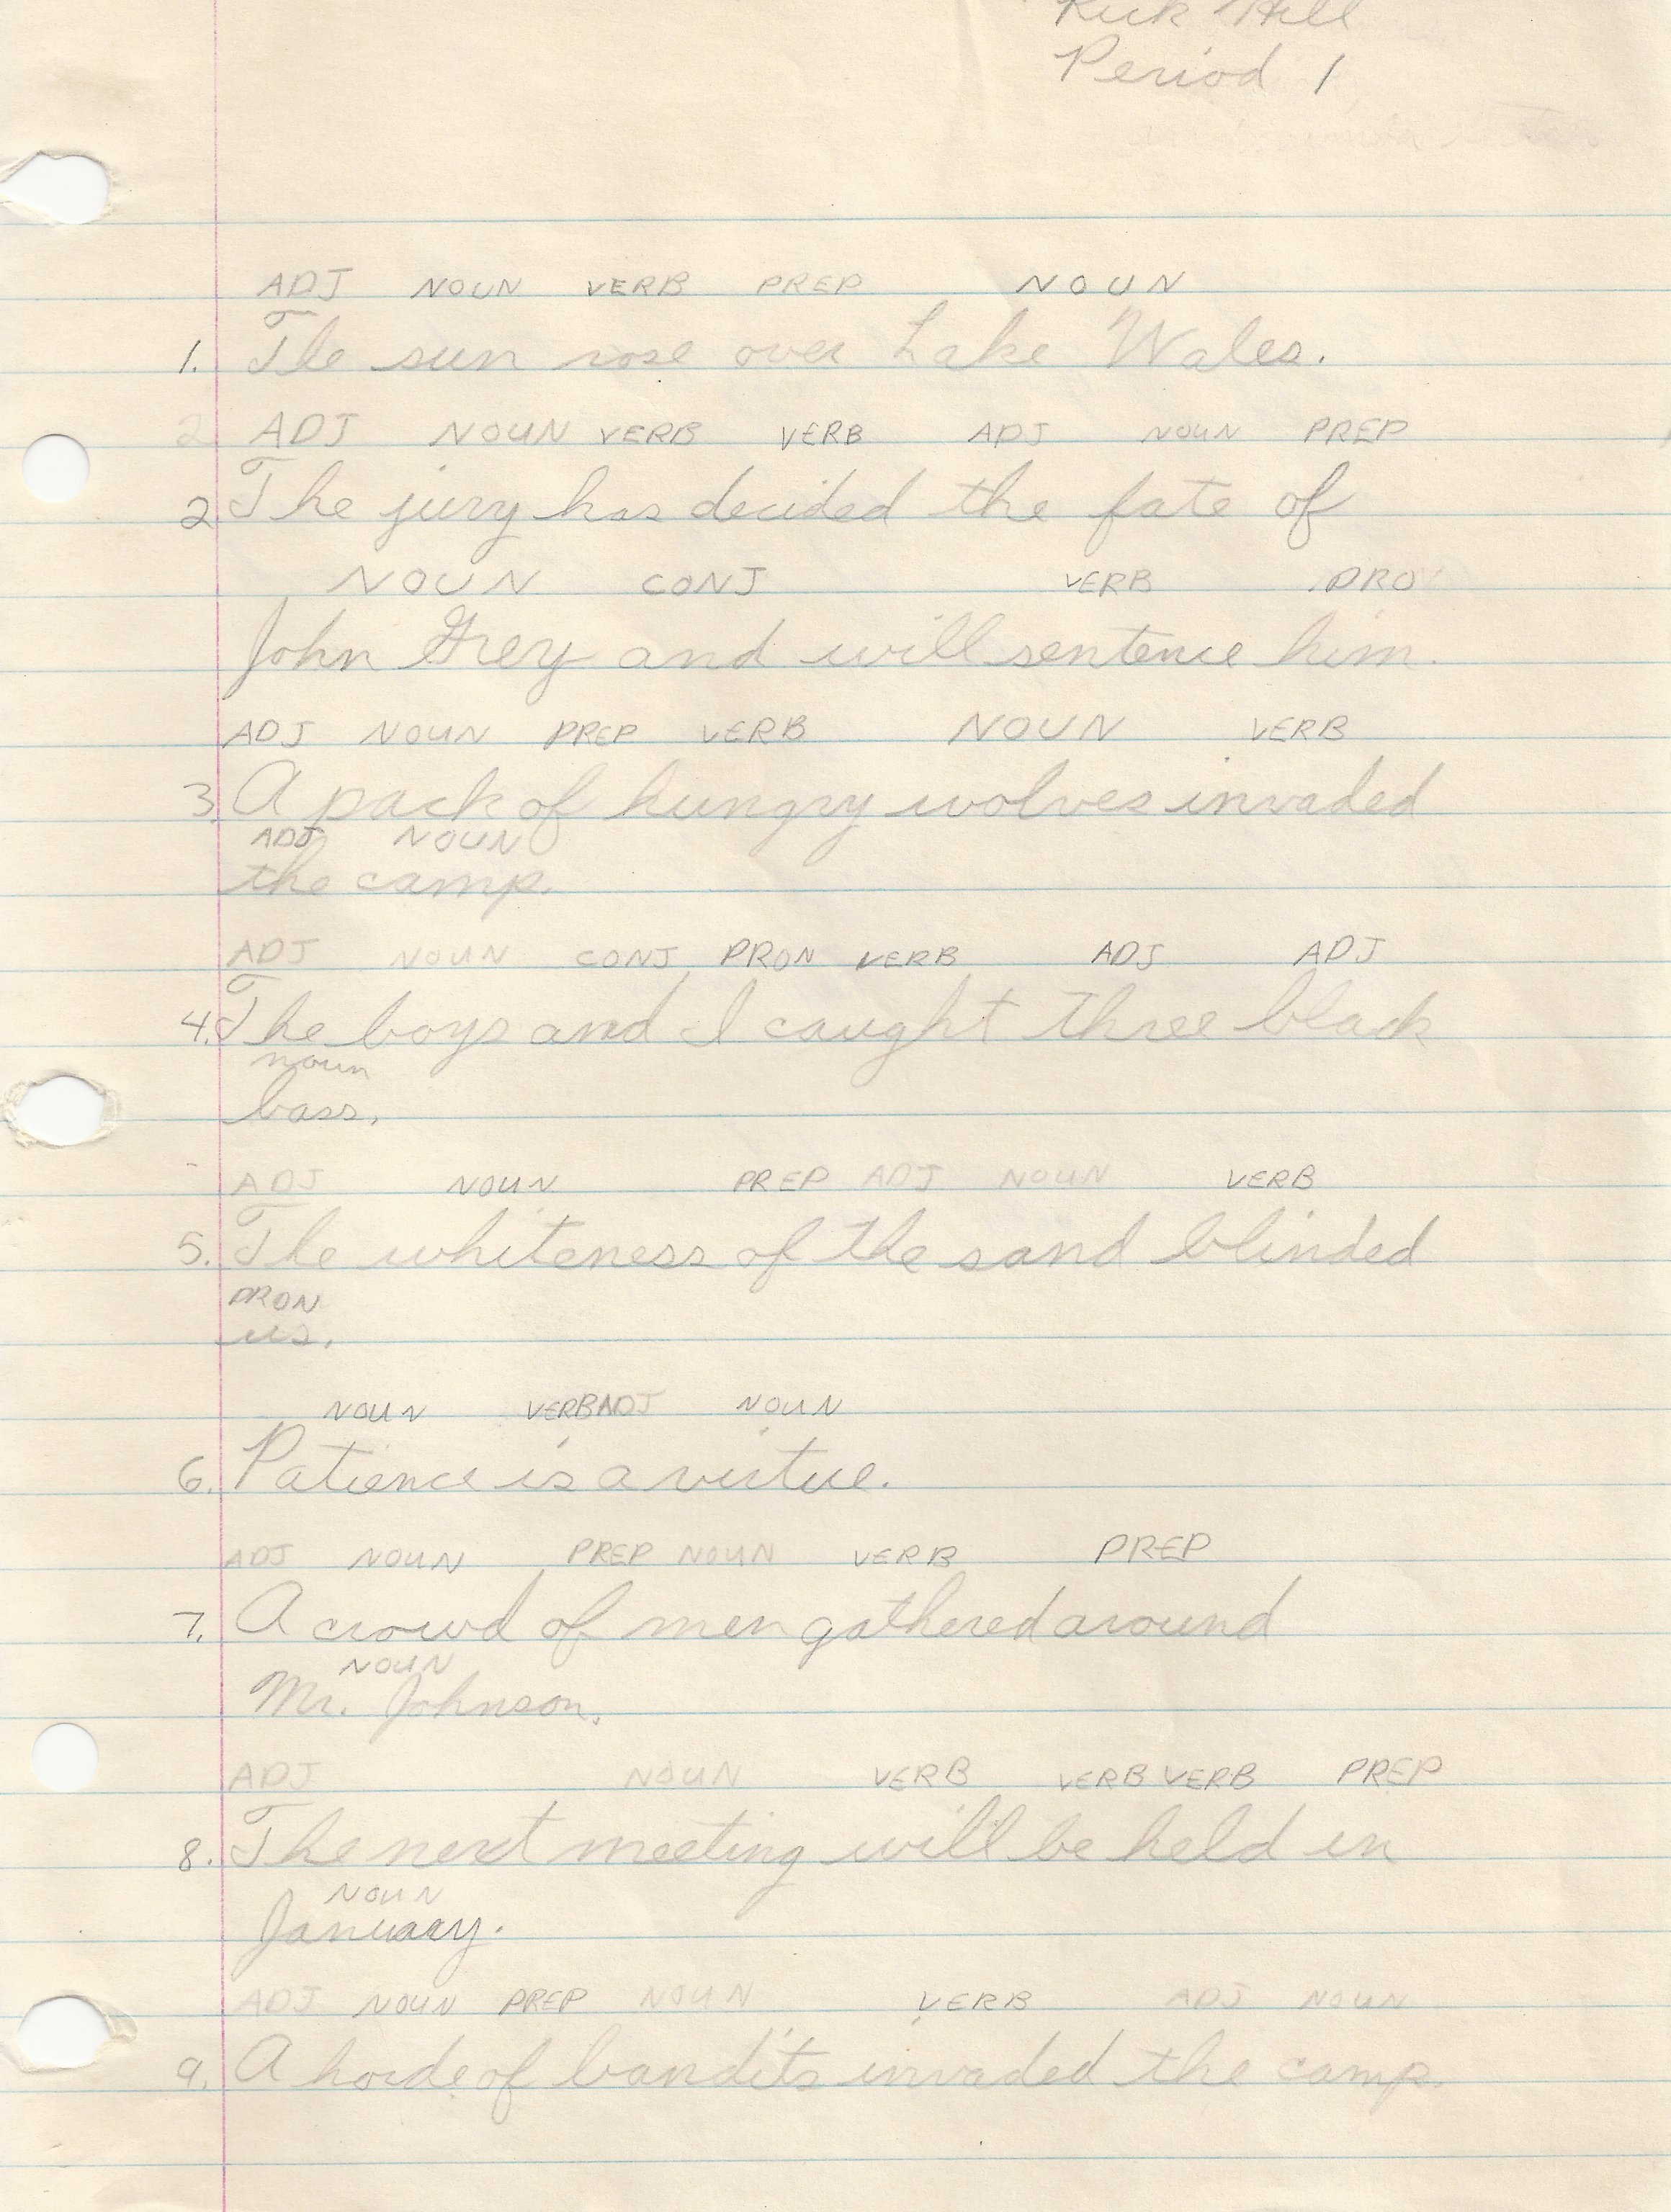 Rick Hill
Period 1
ADJ NOUN VERB PREP NOUN
1. The sun rose over Lake Wales.
2 ADJ NOUN VERB VERB ADJ NOUN PREP
2. The jury has decided the fate of
NOUN CONJ VERB PRO
John Grey and will sentence him.
ADJ NOUN PREP VERB NOUN VERB
3. A pack of hungry wolves invaded
ADJ NOUN
the camp.
ADJ NOUN CONJ PRON VERB ADJ ADJ
4. The boys and I caught three black
noun
bass.
ADJ NOUN PREP ADJ NOUN VERB
5. The whiteness of the sand blinded
PRON
us.
NOUN VERB ADJ NOUN
6. Patience is a virtue.
ADJ NOUN PREP NOUN VERB PREP
7. A crowd of men gathered around
NOUN
Mr. Johnson.
ADJ NOUN VERB VERB VERB PREP
8. The next meeting will be held in
NOUN
January.
ADJ NOUN PREP NOUN VERB ADJ NOUN
9. A horde of bandits invaded the camp.